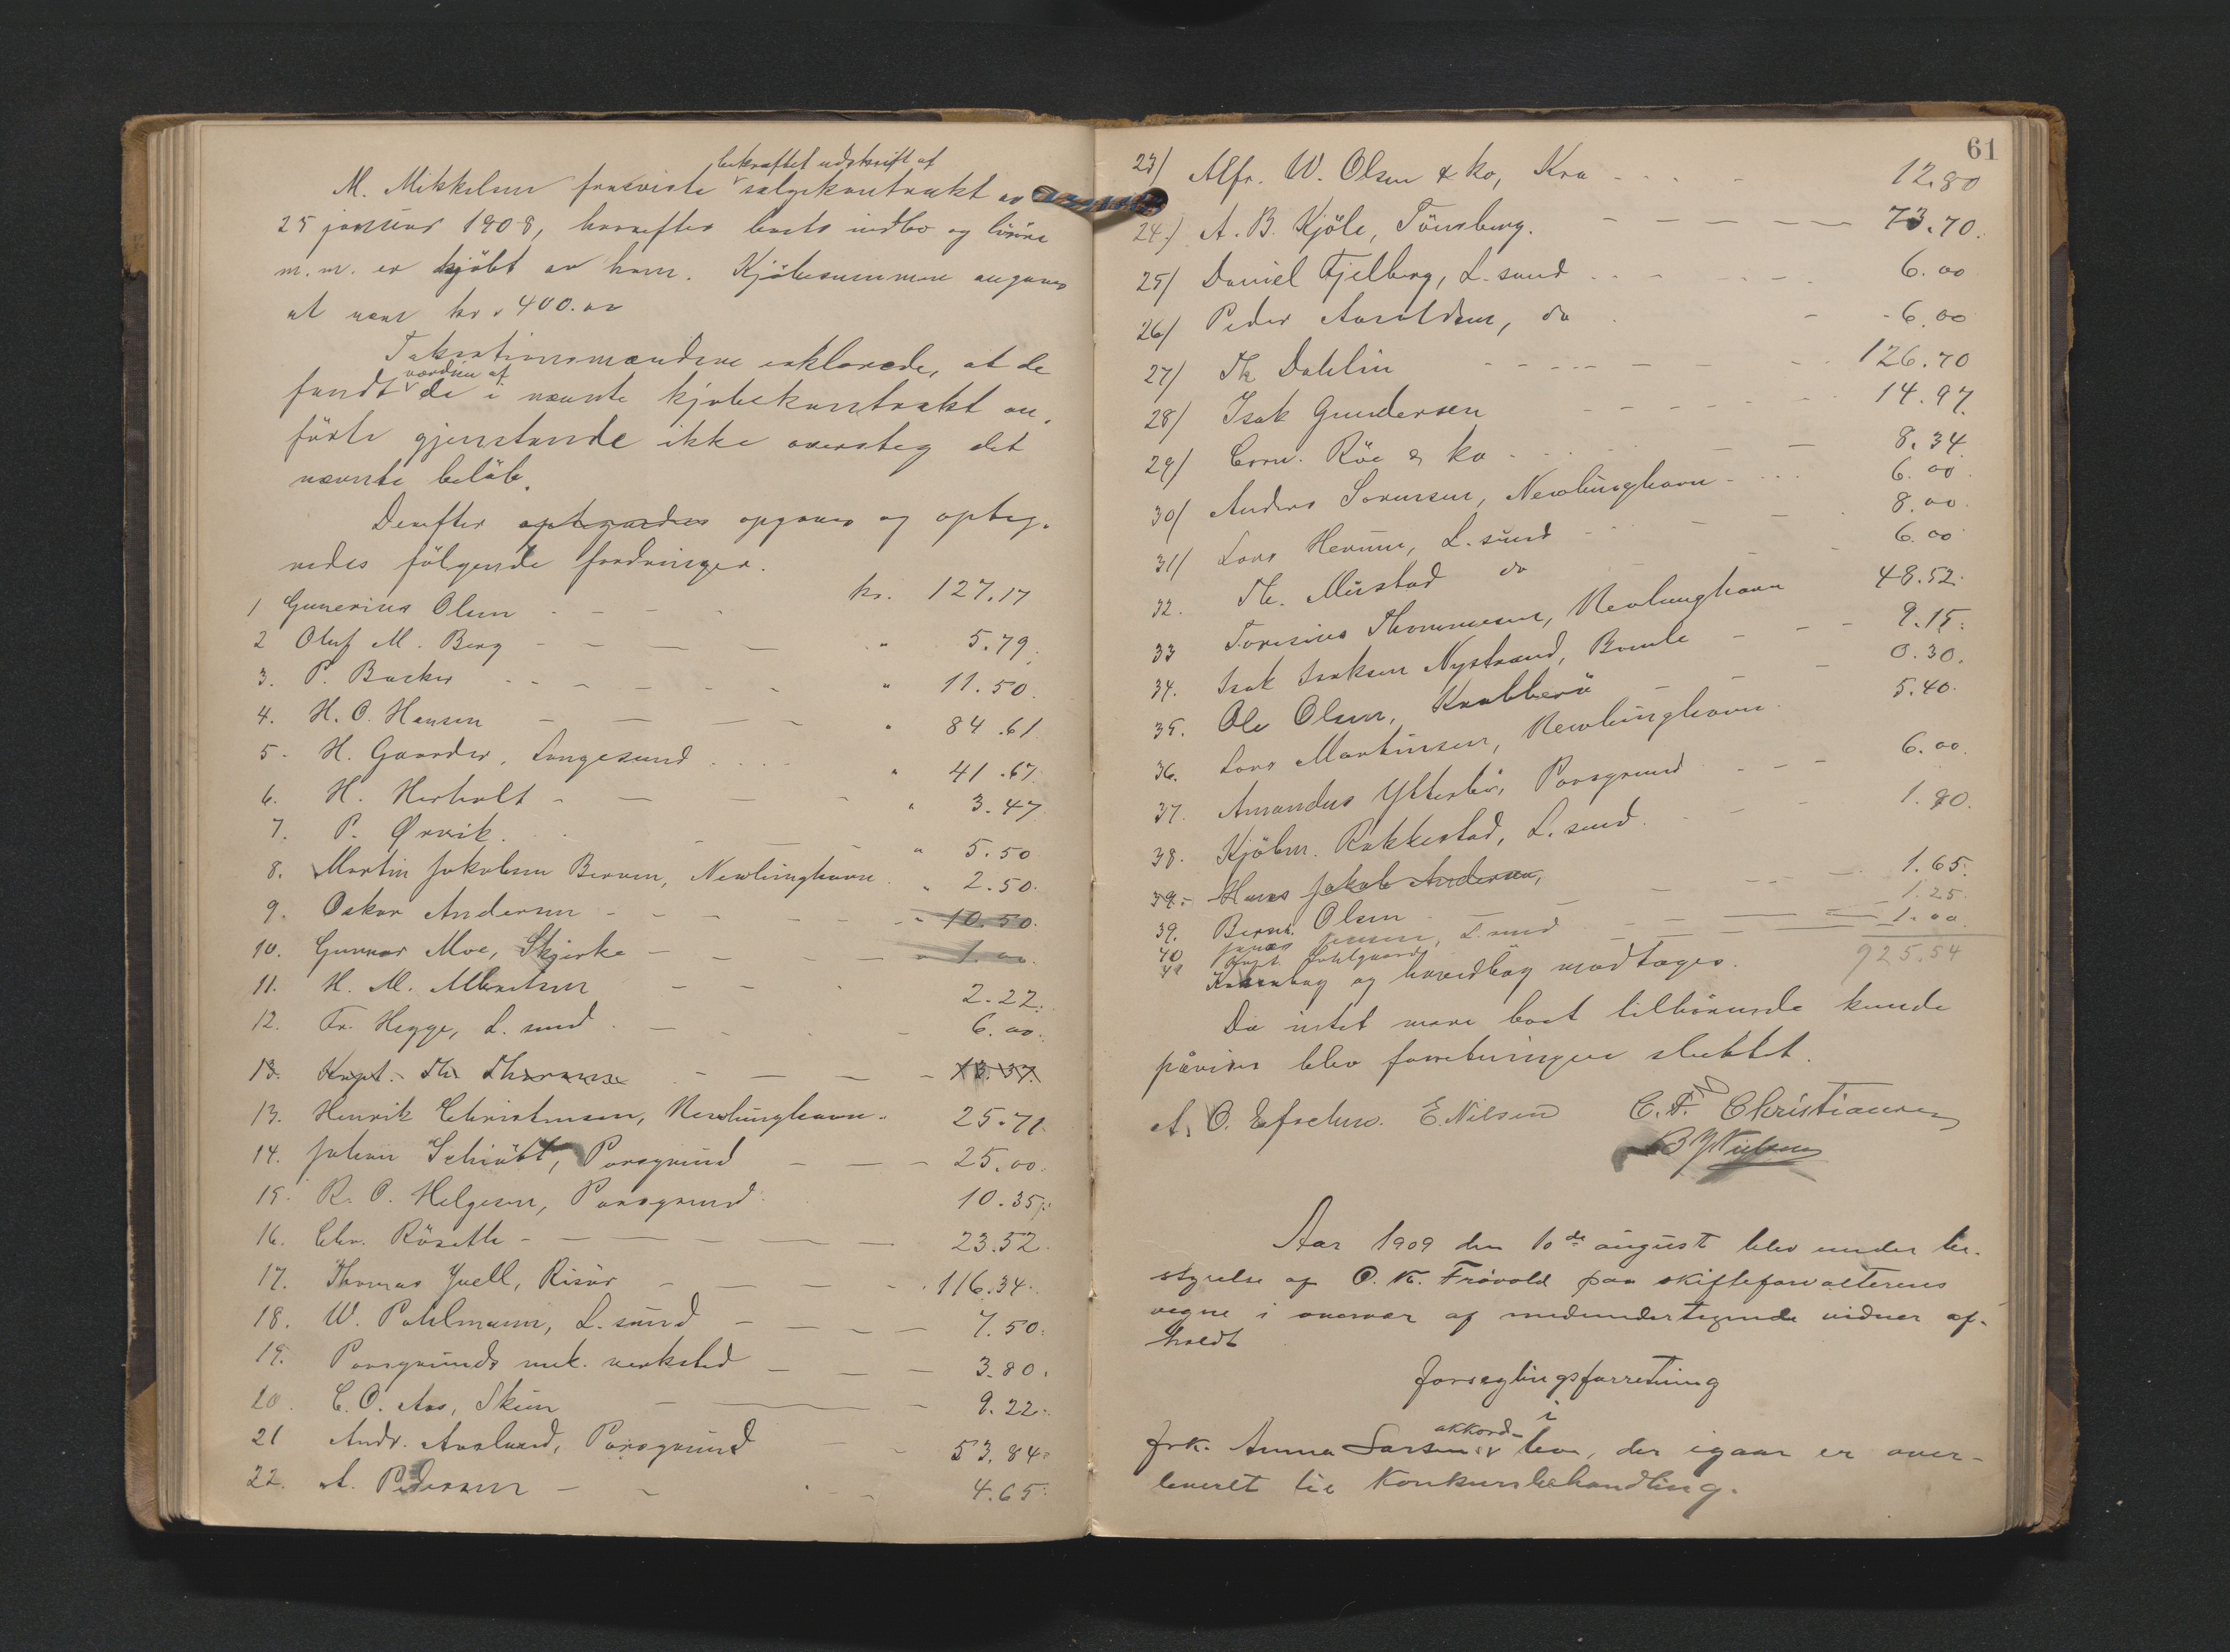 bekræftet udskrift af
M. Mikkelsen fremviste salgskontrakt av
25 januar 1908, hvorefter boets indbo og lösöre
m.m. er kjöbt av ham. Kjöbesummen angaves
at være kr. 400.00
Taksationsmændene erklærede, at de
værdien af
fandt de i nævnte kjöbekontrakt an-
förte gjenstande ikke oversteg det
nævnte belöb.
Derefter optegnedes opgaves og opteg-
nedes fölgende fordringer.
1 Gunerius Olsen - - - - kr. 127.17
2 Oluf M. Berg - - - - " 5.79
3. P. Backer - - - - " 11.50
4. H. O. Hansen - - - - " 84.61
5. H. Gaarder, Langesund . . . . " 41.67
6. H. Herholt - - - - " 3.47
7. P. Ørvik - - - " 5.50
8. Martin Jakobsen Berven, Nevlunghavn " 2.50
9. Oskar Andersen - - - - " 10.50
10. Gunnar Moe, Skjerke - - - - " 1.00
11. H. M. - - - 2.22
12. Fr. Hegge, L. sund - - - 6.00
13. Kapt. Th. - - - - 13.37
13. Henrik Christensen, Nevlunghavn 25.71
14. Johan Schiöbt, Porsgrund - - - 25.00
15. R. P. Helgesen, Porsgrund 10.35
16. Chr. Röseth - - - - 23.52
17. Thomas Juell, Risör - - - 116.34
18. W. Pohlmann, L. sund - - - - 7.50
19. Porsgrunds mek. verksted - - - 3.80
20. C. O. Aas, Skien - - - 9.22
21 Andr. Aaslund, Porsgrund - - 53.84
22. A. Pedersen - - - 4.65
61
23/ Alfr. W. Olsen & ko, Kra - - - - 12.80
24/ A. B. Kjöle, Tönsberg. - - - - - 73.70
25/ Daniel Fjelberg, L. sund - - - - 6.00
26/ Peder Aaroldsen, do - - 6.00
27/ Th Dahlin - - - - - 126.70
28/ Isak Gundersen - - - - 14.97
29/ Corn. Röe & ko - - - 8.34
30/ Anders Sörensen, Nevlunghavn - - - 6.00
31/ Lars Herum, L. sund - - - 8.00
32. Th. Mustad do - - 6.00
33 Toresius Thommesen, Nevlunghavn 48.52
34. Isak Isaksen Nystrand, Bamle - - - 9.15
35. Ole Olsen, Krabberö - - - 0.30
36. Lars Martinsen, Nevlunghavn 5.40
37. Amandus Ytterbö, Porsgrund - - - 6.00
38. Kjöbm. Rakkestad, L. sund - - 1.80
39. Hans Jakob Andersen,
39. Bernt Olsen - - - - 1.65
40 Jensen, L. sund - - - 1.25
41 Kapt. - - - 1.00
Kassabog og hovedbog modtoges. 925.54
Da intet mere boet tilhörende kunde
påvises blev forretningen sluttet.
A. O. E. Nilsen C. F. Christiansen
B Nielsen
Aar 1909 den 10de august blev under be-
styrelse af O. K. Frövold paa skifteforvalterens
vegne i overvær af medundertegnede vidner af-
holdt
forseglingsforretning
i
akkord-
frk. Anna Larsens bo, der igaar er over-
leveret til Konkursbehandling.